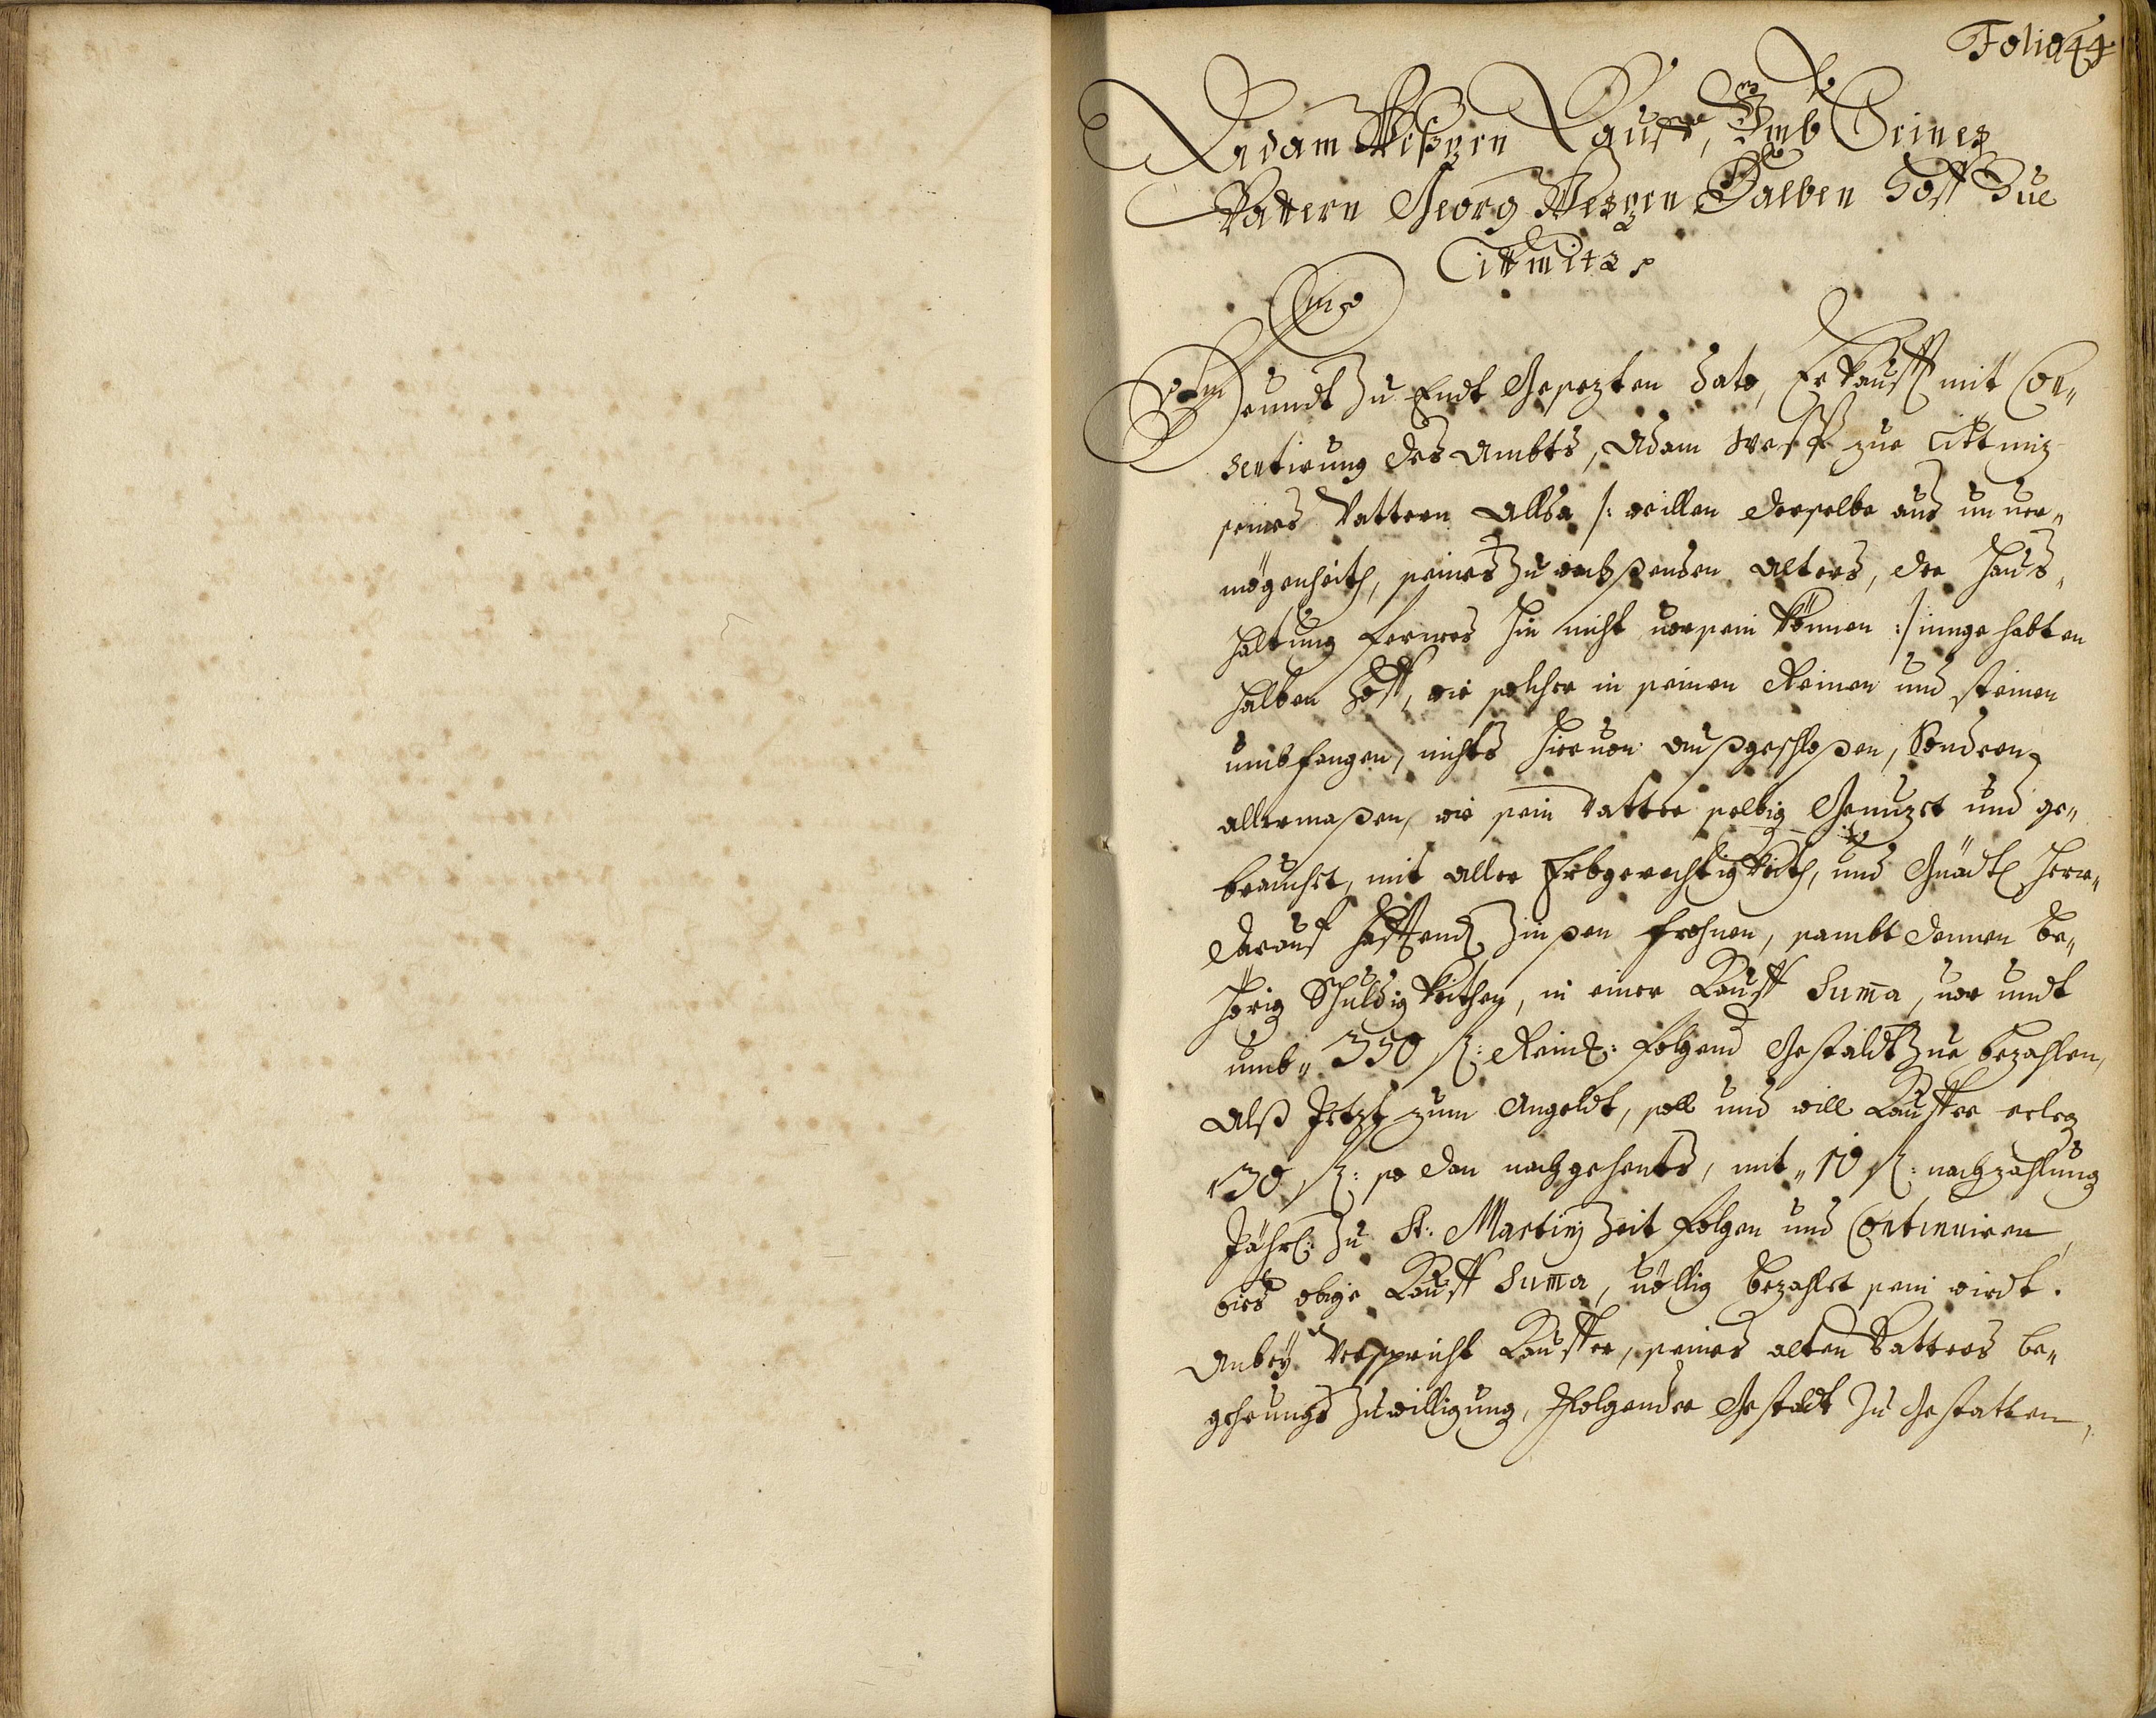 Folio 44
Adam Weßzen Kauff, Umb Seines
Vattern Georg Weßzen Halben Hoff Zue
Tittmitz
Im
Heundt Zu Endt Gesezten Dato, Erkaufft mit Con„
sentirung des Ambts, Adam Weß zue Tittmiz
seines Vattern Allda /: weillen derselbe aus unver„
mögenheith, seines Zu wachßenden Alters, der Haus„
haltung ferners hin nicht vorsein können :/ innge habten
halben Hoff, wie solcher in seinen Reinen und steinen
umbfangen, nichts hiervon außgeschloßen, Sondern
allermaßen, wie sein Vatter selbig Genuzet und ge„
brauchet, mit aller Erbgerechtigkeith, und Gnädl Herr„
darauf hafftend Zinßen frohnen, sambt denen be„
hörig Schuldigkeithen, in einer Kauff Suma, vor undt
umb„ 350 fl: Reinl: folgend Gestaldt Zue bezahlen,
Alß Jetzt zum Angeldt, soll und will Kauffer erleg
„30 fl: so dan nachgehents, mit„ 10 fl: nachzahlung
Jährl: Zu St: Martinj Zeit folgen und Continuiren,
bies obige Kauff Suma, völlig bezahlet sein wirdt.
Anbey Verspricht Kauffer, seines alten Vatters be„
gehrungs Zuwilligung, Folgender Gestaldt Zu Gestatten,